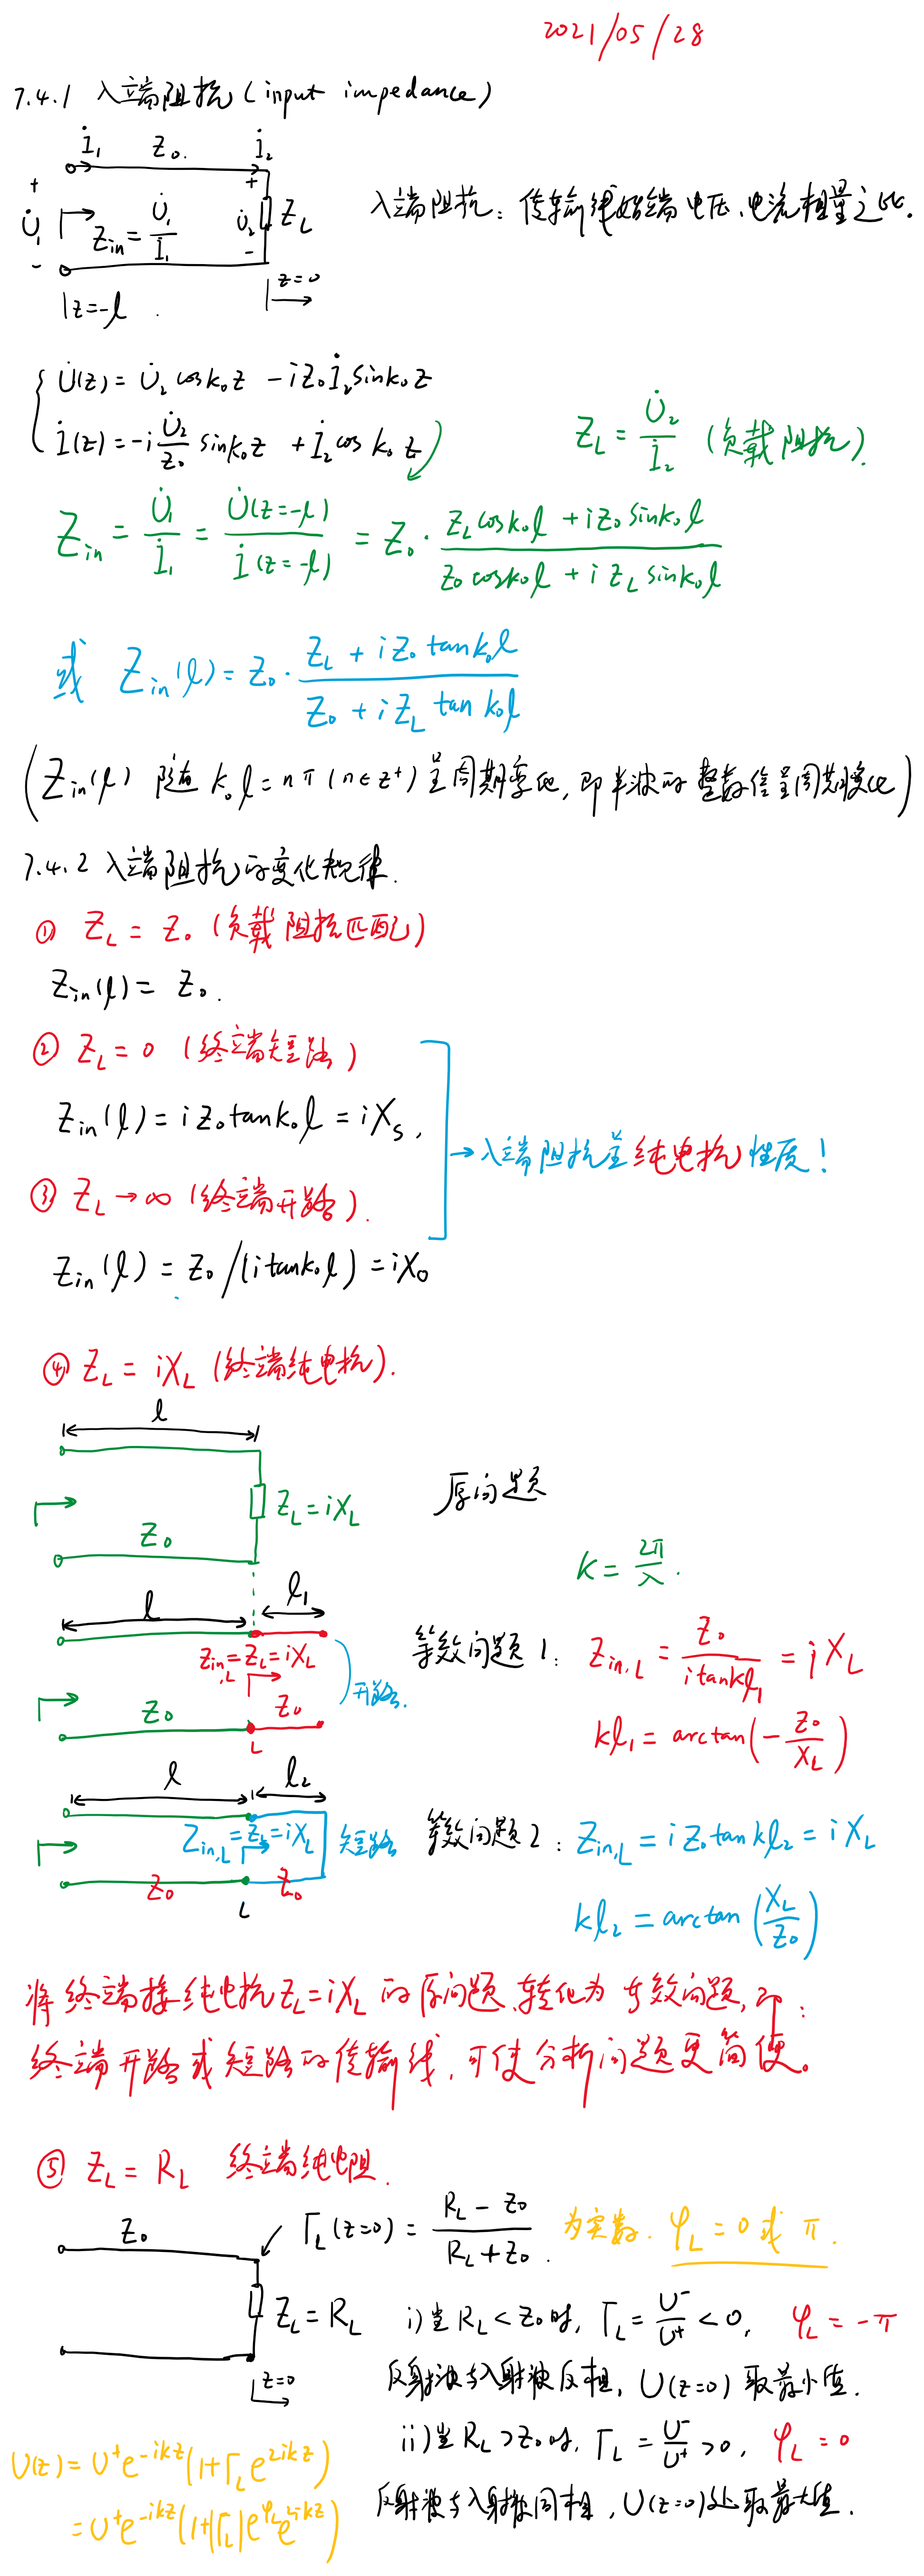 2021/05/28
7.4.1 入端阻抗 (input impedance)
İ₁ Z₀. İ₂
+ U̇₁ - Zin = U̇₁/İ₁ + U̇₂ - Z_L
|z=-l
z=0
入端阻抗: 传输线始端电压、电流相量之比.
{ U̇(z) = U̇₂ cosk₀z - iZ₀İ₂sink₀z
İ(z) = -i U̇₂/Z₀ sink₀z + İ₂cos k₀z
Z_L = U̇₂/İ₂ (负载阻抗).
Zin = U̇₁/İ₁ = U̇(z=-l)/İ(z=-l) = Z₀ · (Z_L cosk₀l + iZ₀ sink₀l)/(Z₀ cosk₀l + i Z_L sink₀l)
或 Zin(l) = Z₀ · (Z_L + iZ₀ tank₀l)/(Z₀ + iZ_L tan k₀l)
(Zin(l) 随 k₀l = nπ (n∈z⁺) 呈周期变化, 即半波的整数倍呈周期变化)
7.4.2 入端阻抗的变化规律.
① Z_L = Z₀ (负载阻抗匹配)
Zin(l) = Z₀.
② Z_L = 0 (终端短路)
Zin(l) = iZ₀tank₀l = iX_S,
→入端阻抗呈纯电抗性质!
③ Z_L→∞ (终端开路).
Zin(l) = Z₀/(itank₀l) = iX₀
④ Z_L = iX_L (终端纯电抗).
l
Z_L = iX_L
Z₀
原问题
k = 2π/λ.
l l₁
Zin,L = Z_L = iX_L
开路.
Z₀ Z₀
L
等效问题1: Zin,L = Z₀/(itankl₁) = iX_L
kl₁ = arctan(-Z₀/X_L)
l l₂
Zin,L = Z_L = iX_L 短路
Z₀ Z₀
L
等效问题2: Zin,L = iZ₀tankl₂ = iX_L
kl₂ = arctan(X_L/Z₀)
将终端接纯电抗Z_L=iX_L 的原问题、转化为等效问题, 即:
终端开路或短路的传输线, 可使分析问题更简便。
⑤ Z_L = R_L 终端纯电阻.
Z₀
Γ_L(z=0) = (R_L - Z₀)/(R_L + Z₀). 为实数. φ_L = 0 或 π.
Z_L = R_L
z=0
i) 当 R_L < Z₀ 时, Γ_L = U⁻/U⁺ < 0, φ_L = -π
反射波与入射波反相, U(z=0) 取最小值.
ii) 当 R_L > Z₀ 时, Γ_L = U⁻/U⁺ > 0, φ_L = 0
反射波与入射波同相, U(z=0)处取最大值.
U(z) = U⁺e^{-ikz}(1+Γ_L e^{2ikz})
= U⁺e^{-ikz}(1+|Γ_L|e^{φ_L}e^{2ikz})